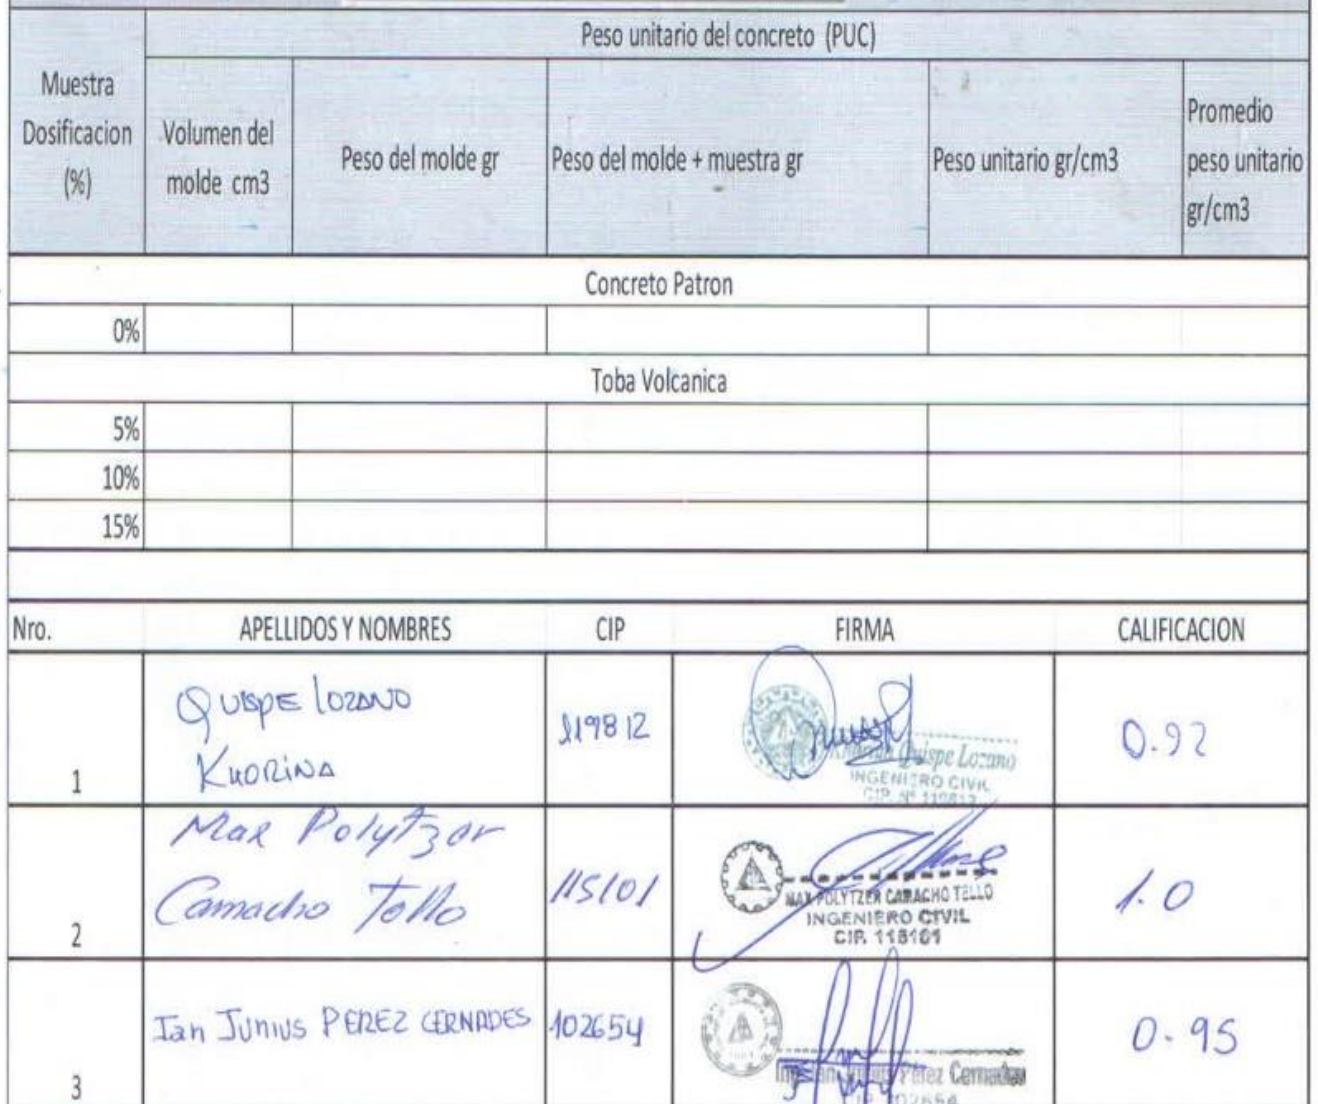 Peso unitario del concreto (PUC)
Muestra
Dosificacion
(%)
Volumen del
molde cm3
Peso del molde gr
Peso del molde + muestra gr
Peso unitario gr/cm3
Promedio
peso unitario
gr/cm3
Concreto Patron
0%
Toba Volcanica
5%
10%
15%
Nro. APELLIDOS Y NOMBRES CIP FIRMA CALIFICACION
1
QUISPE LOZANO
KHORINA
119812
Quispe Lozano
INGENIERO CIVIL
CIP. Nº 119812
0.92
2
Max Polytzer
Camacho Tello
115101
MAX POLYTZER CAMACHO TELLO
INGENIERO CIVIL
CIP. 115101
1.0
3
Ian Junius PEREZ CERNADES
102654
Perez Cernades
CIP. 102654
0.95